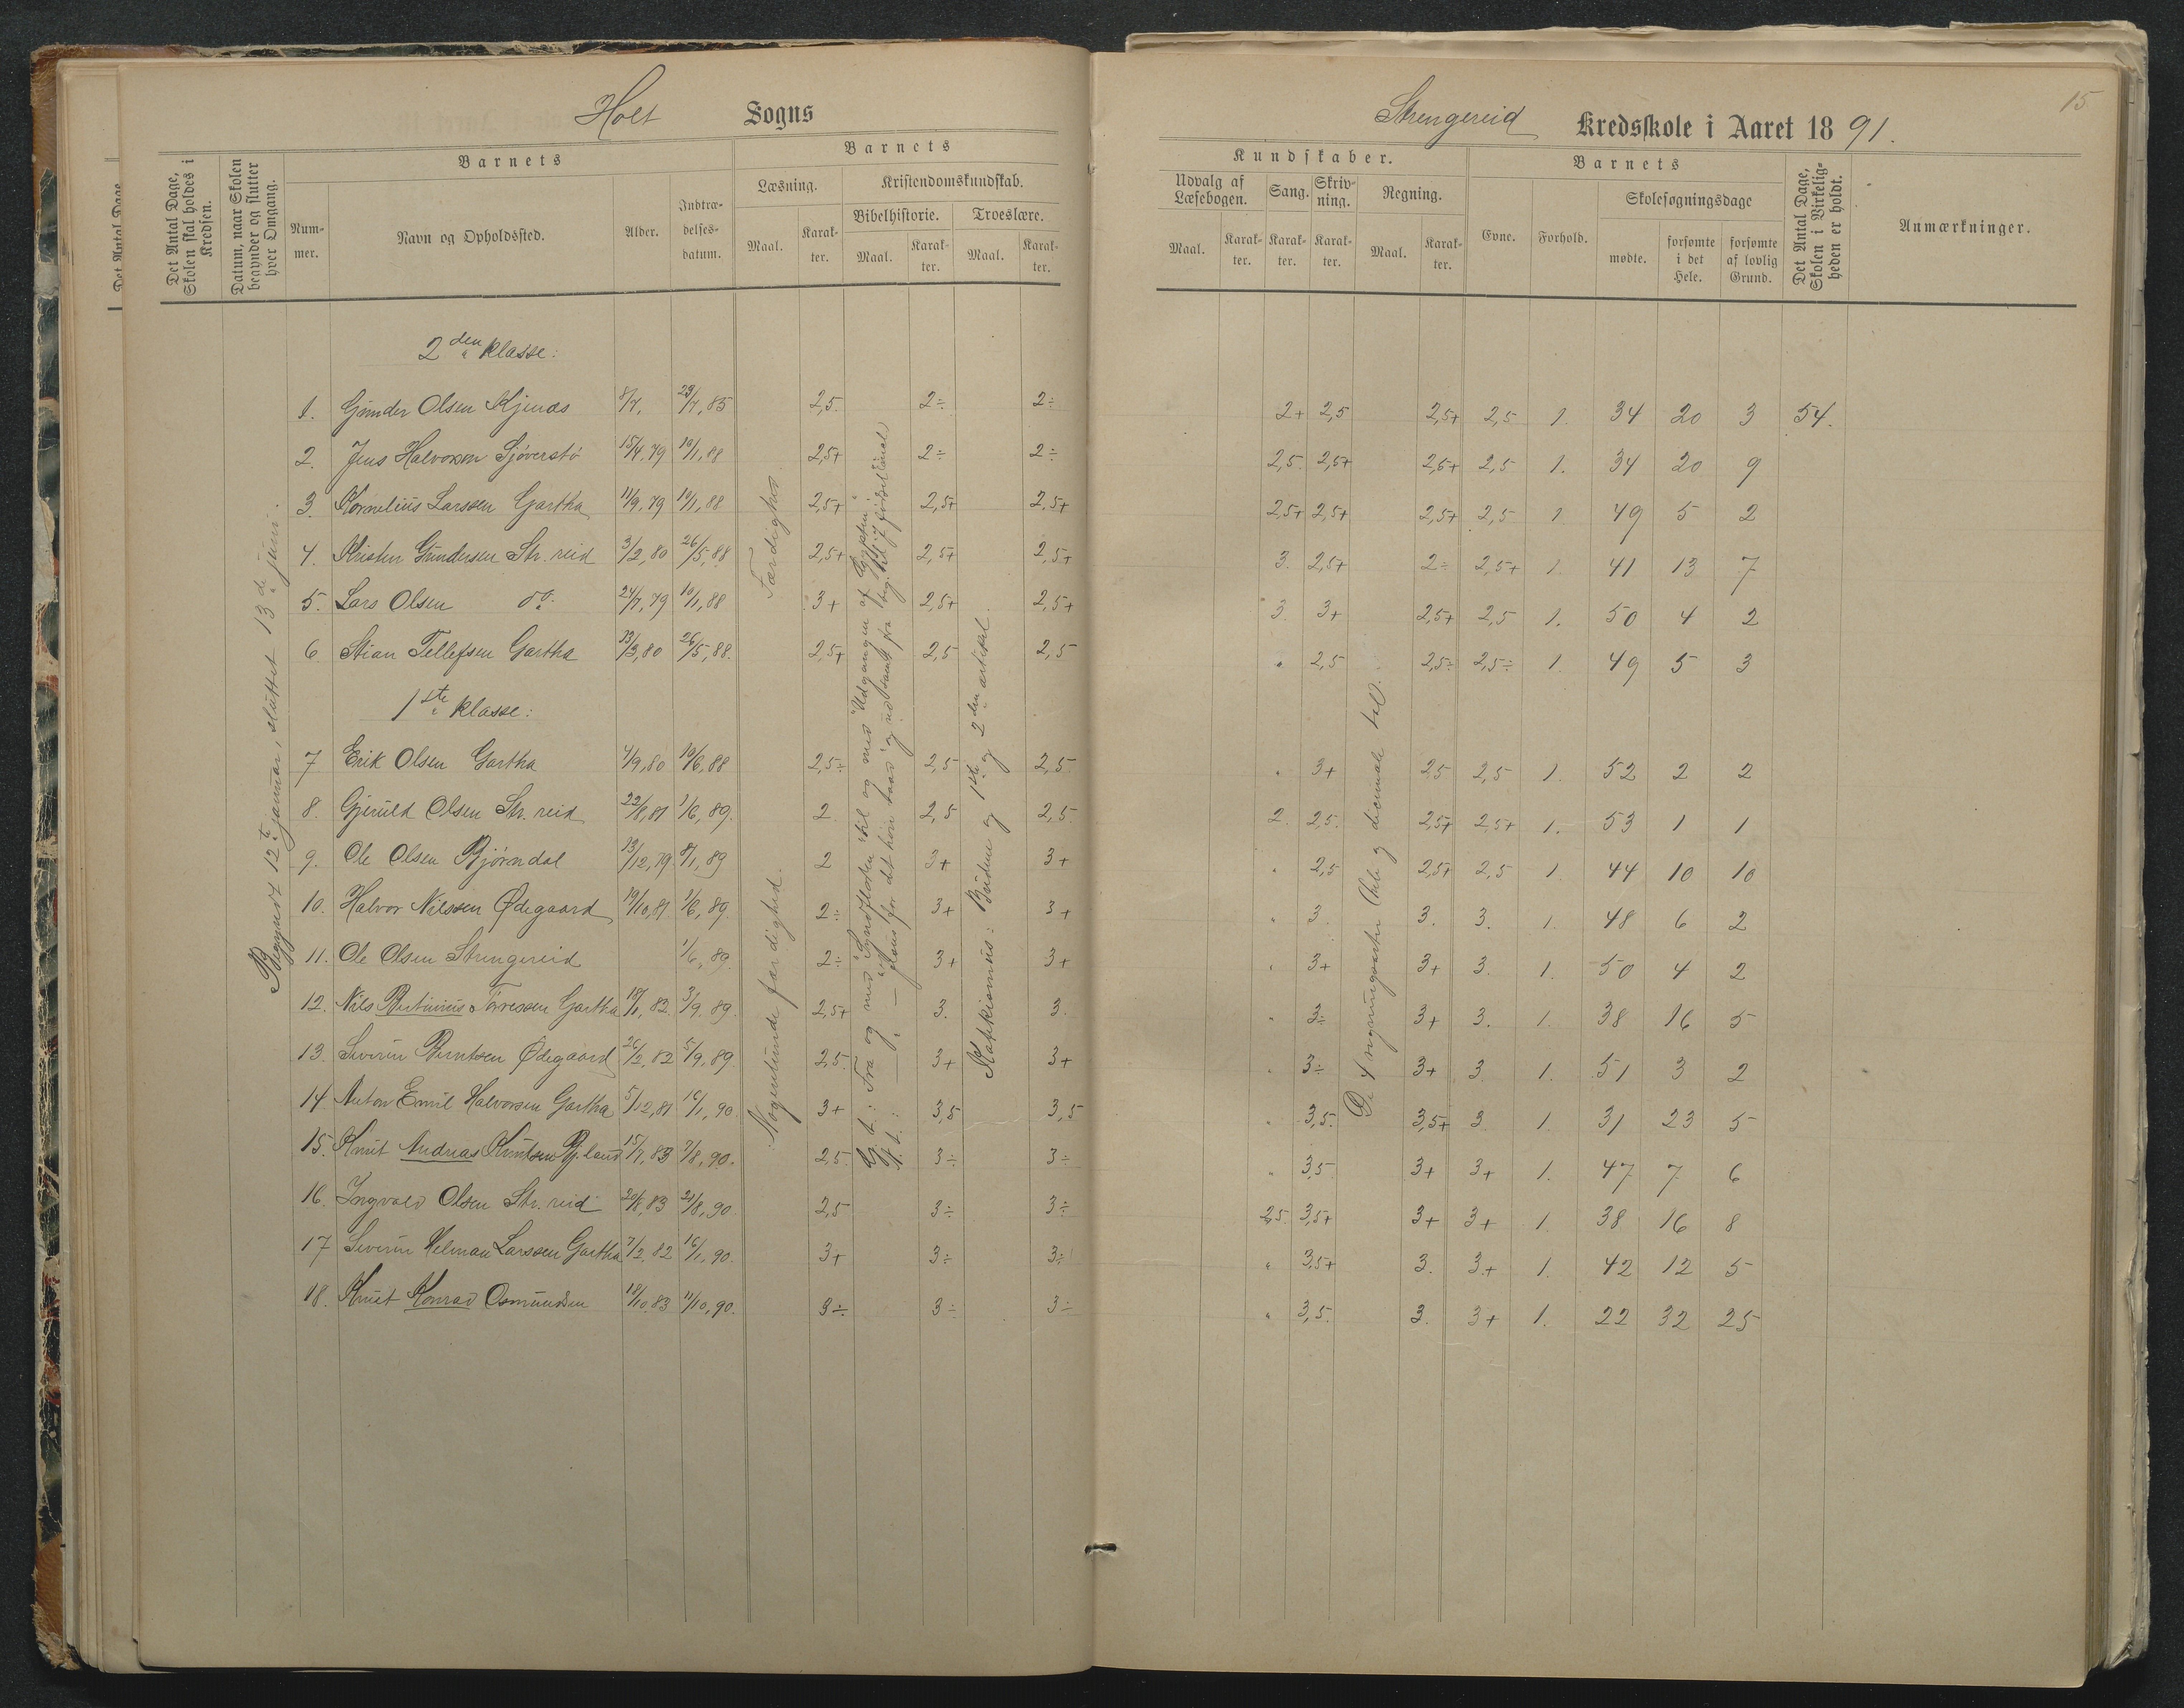 Holt Sogns
Strengereid Kredsskole i Aaret 1891.
15
Det Antal Dage, Skolen skal holdes i Kredsen.
Datum, naar Skolen begynder og slutter hver Omgang.
Barnets
Nummer.
Navn og Opholdssted.
Alder.
Indtrædelsesdatum.
Barnets
Læsning.
Maal.
Karakter.
Kristendomskundskab.
Bibelhistorie.
Maal.
Karakter.
Troeslære.
Maal.
Karakter.
Kundskaber.
Udvalg af Læsebogen.
Maal.
Karakter.
Sang.
Karakter.
Skrivning.
Karakter.
Regning.
Maal.
Karakter.
Barnets
Evne.
Forhold.
Skolesøgningsdage
mødte.
forsømte i det Hele.
forsømte af lovlig Grund.
Det Antal Dage, Skolen i Virkeligheden er holdt.
Anmærkninger.
Begyndt 12te januar, sluttet 13de juni.
2den klasse:
1. Gunder Olsen 8/7, 29/7, 85 2,5 2÷ 2÷ 2+ 2,5 2,5+ 2,5 1. 34 20 3 54.
2. Jens Halvorsen Sjøverstø 15/4, 79 10/1, 88 2,5+ 2÷ 2÷ 2,5 2,5+ 2,5+ 2,5 1. 34 20 9
3. Kornelius Larssen Gartha 11/9, 79 10/1, 88 2,5+ 2,5+ 2,5+ 2,5+ 2,5+ 2,5+ 2,5 1. 49 5 2
4. Kristen Gundersen Str.reid 3/2, 80 26/5, 88 2,5+ 2,5+ 2,5+ 3. 2,5+ 2÷ 2,5+ 1. 41 13 7
5. Lars Olsen do. 24/7, 79 10/1, 88 3+ 2,5+ 2,5+ 3 3+ 2,5+ 2,5 1. 50 4 2
6. Stian Tellefsen Gartha 13/3, 80 26/5, 88. 2,5+ 2,5 2,5 " 2,5 2,5÷ 2,5÷ 1. 49 5 3
1ste klasse:
7 Erik Olsen Gartha 4/9, 80 10/6, 88 2,5÷ 2,5 2,5 " 3+ 2,5 2,5 1. 52 2 2
8. Gjeruld Olsen Str.reid 22/8, 81 1/6, 89. 2 2,5 2,5 2. 2,5. 2,5+ 2,5+ 1. 53 1 1
9. Ole Olsen Bjørndal 13/12, 79 8/1, 89 2 3+ 3+ " 2,5 2,5+ 2,5 1. 44 10 10
10. Halvor Nilssen Ødegaard 19/10, 81 1/6, 89. 2÷ 3+ 3+ " 3. 3. 3. 1. 48 6 2
11. Ole Olsen Strengereid 1/6, 89. 2÷ 3+ 3+ " 3+ 3+ 3. 1. 50 4 2
12. Nils Bertinius Torressen Gartha 18/1, 82. 3/9, 89. 2,5+ 3. 3. " 3÷ 3+ 3. 1. 38 16 5
13. Severin Berntsen Ødegaard 26/2, 82 5/9, 89. 2,5. 3+ 3+ " 3÷ 3+ 3 1. 51 3 2
14 Anton Emil Halvorsen Gartha 5/12, 81 16/1, 90 3+ 3,5 3,5 " 3,5. 3,5+ 3 1. 31 23 5
15. Knut Andreas Knutsen Bj.land 15/7, 83 7/8, 90. 2,5. 3÷ 3÷ " 3,5 3+ 3+ 1. 47 7 6
16. Ingvald Olsen Str.reid 20/8, 83 21/8, 90. 2,5 3÷ 3÷ 2,5. 3,5+ 3+ 3+ 1. 38 16 8
17 Severin Helman Larssen Gartha 7/2, 82 16/1, 90. 3+ 3÷ 3÷ " 3,5+ 3. 3+ 1. 42 12 5
18. Knut Konrad Osmundsen 18/10, 83 11/10, 90. 3÷ 3÷ 3÷ " 3,5. 3. 3+ 1. 22 32 25
Færdighed.
Nogenlunde færdighed.
G.t.: Fra og med "Syndfloden" til og med "Udgangen af Ægypten".
Katekismus: Budene og 1ste og 2den artikel.
De 4 regningsarter